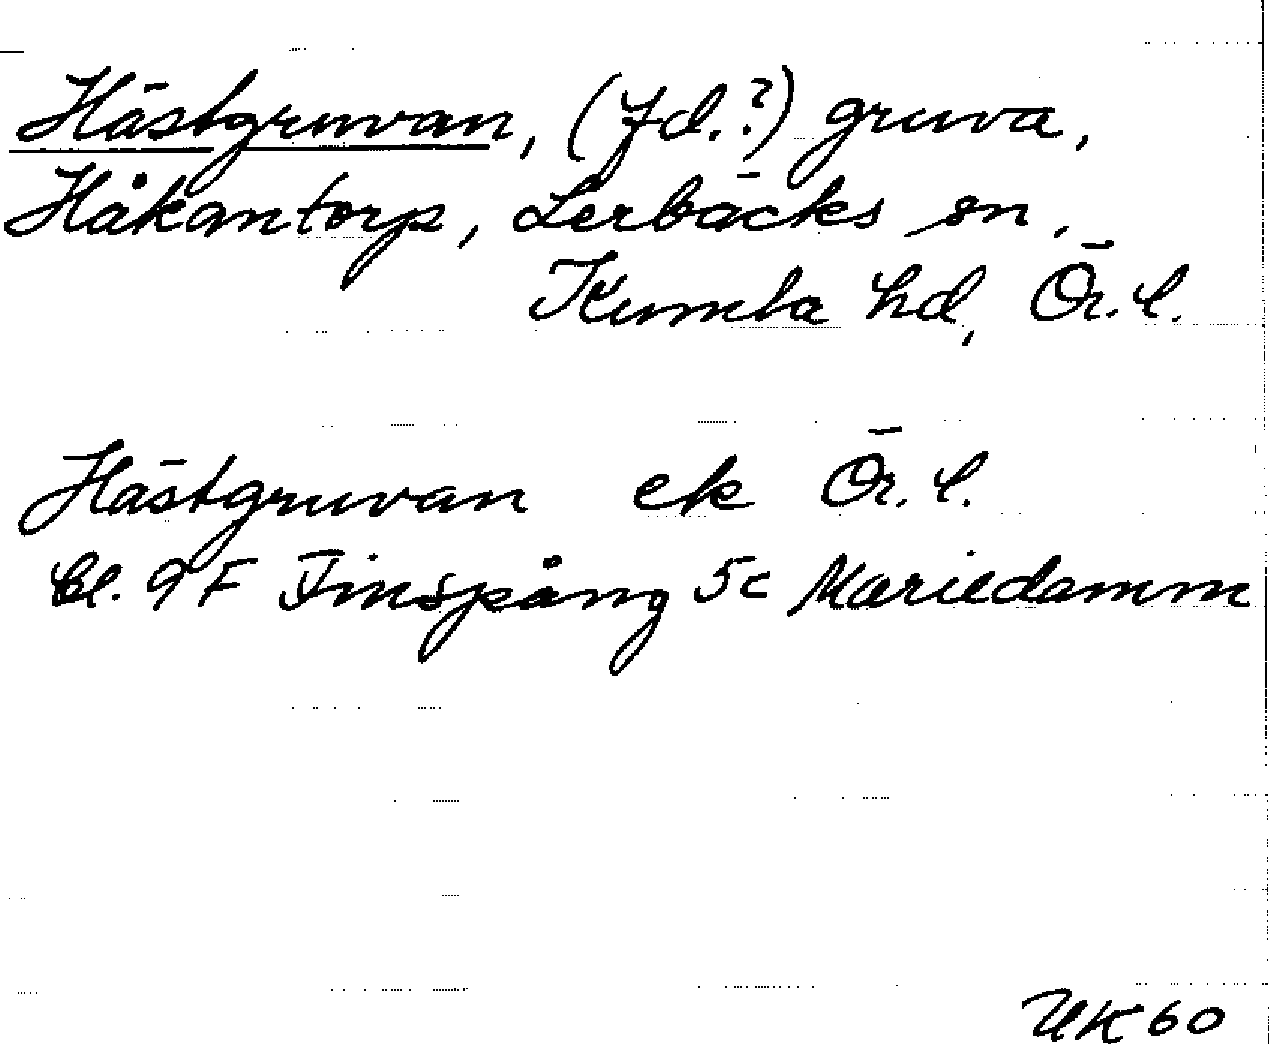 Hästgruvan, (fd.?) gruva,
Håkantorp, Lerbäcks sn,
Kumla hd, Ör. l.
Hästgruvan ek Ör. l.
bl. 9F Finspång 5c Mariedamm
UK 60